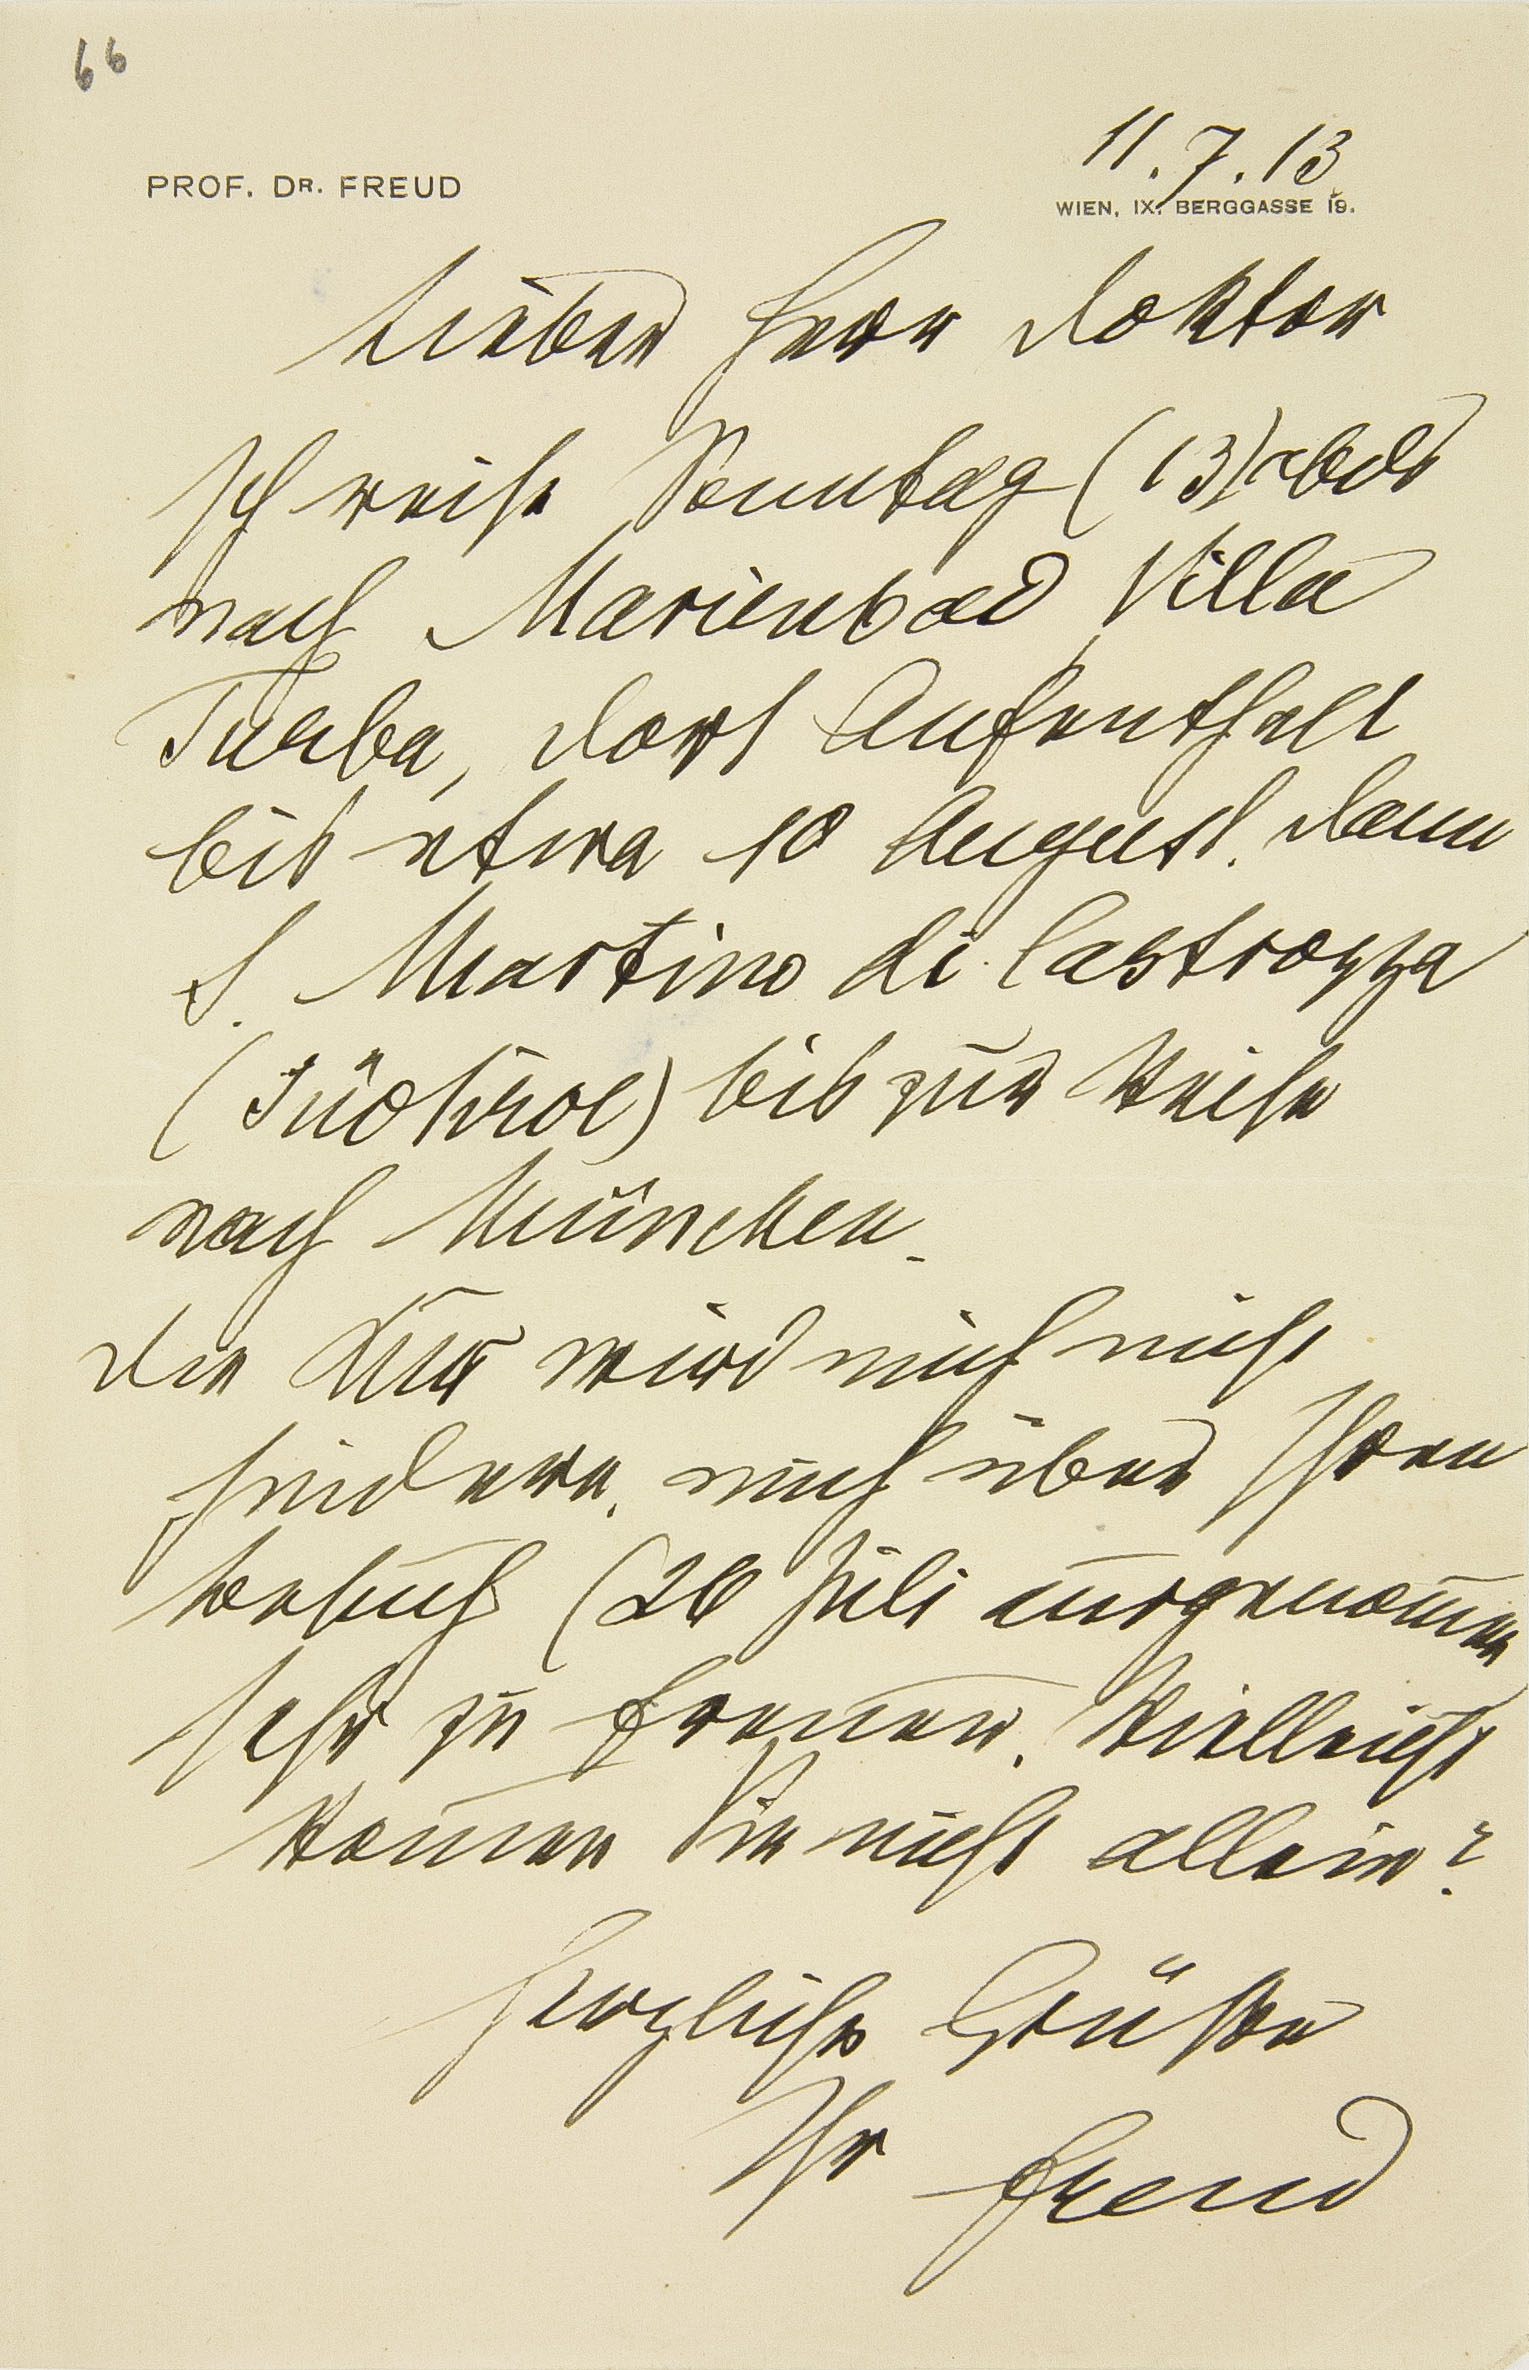 66
11.7.13
PROF. DR. FREUD
WIEN, IX. BERGGASSE 19.
Lieber Herr Doktor
Ich reise Sonntag (13) abds
nach Marienbad, Villa
Turba, dort Aufenthalt
bis etwa 10 August. dann
S. Martino di Castrozza
(Südtirol) bis zur Reise
nach München.
Die Kur wird mich nicht
hindern, mich über Ihren
Besuch (26 Juli ausgenom̅en
sehr zu freuen. Vielleicht
kom̅en Sie nicht allein?
Herzliche Grüße
Ihr Freud